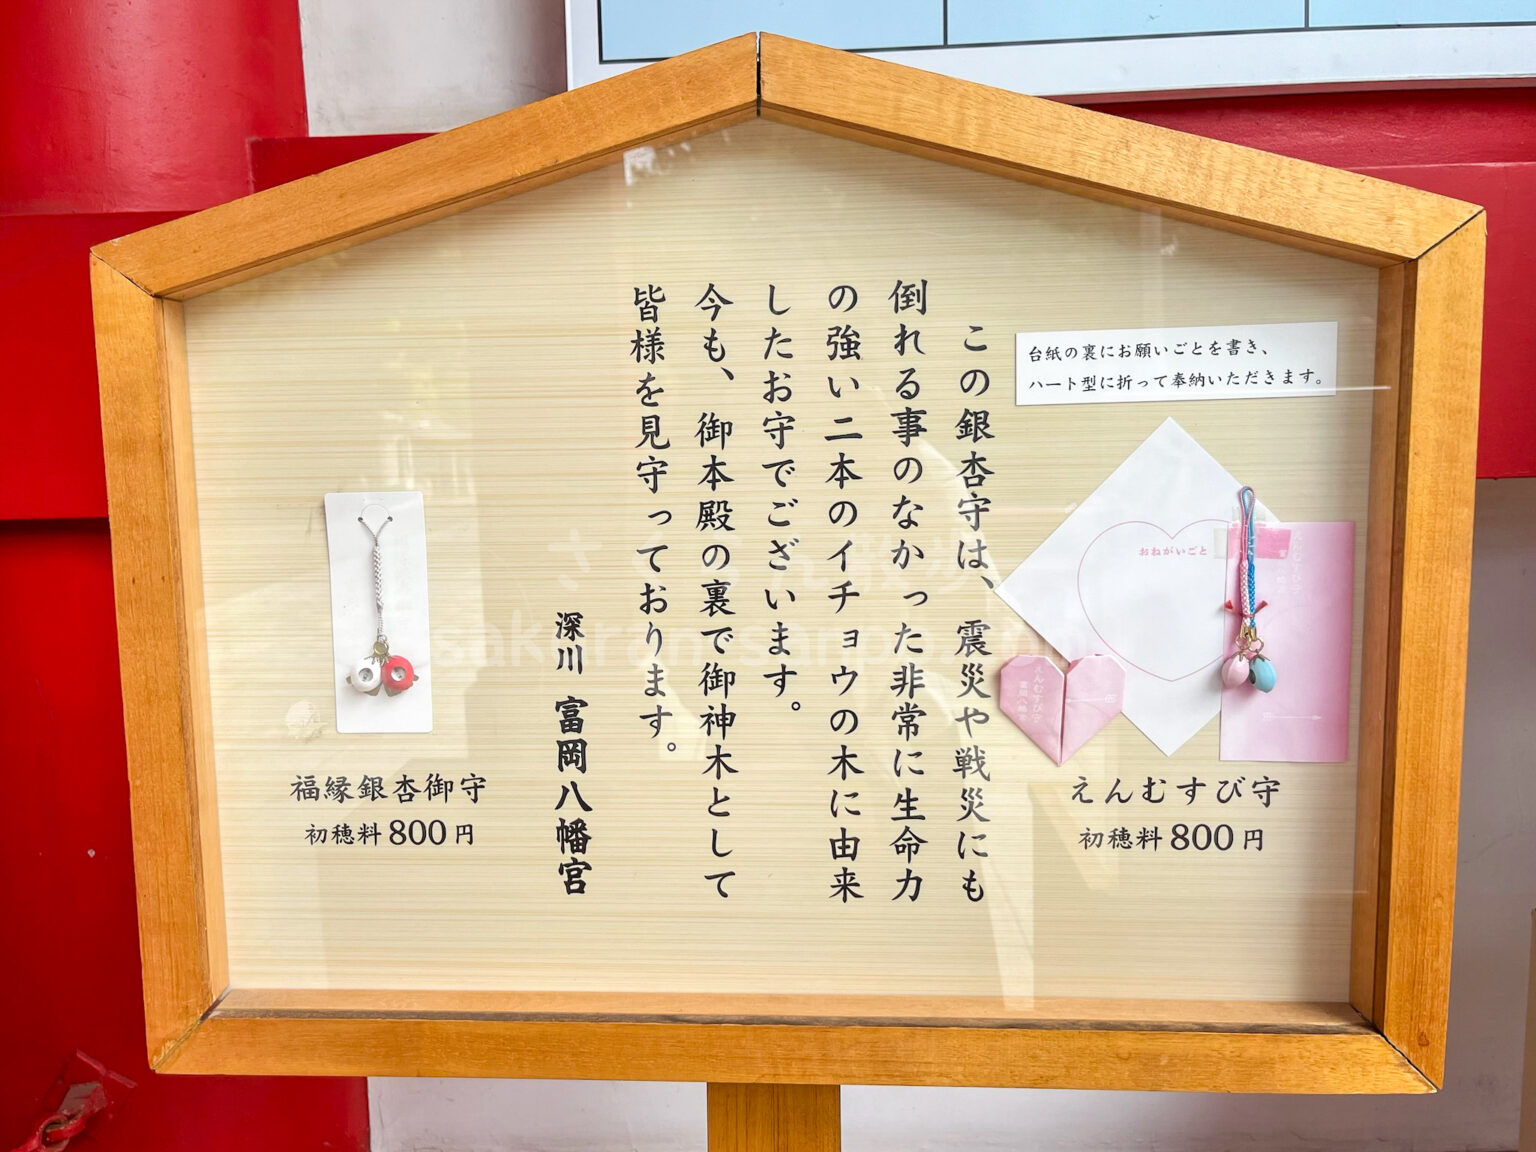 台紙の裏にお願いごとを書き、
ハート型に折って奉納いただきます。
おねがいごと
えんむすび守
えんむすび守
初穂料800円
この銀杏守は、震災や戦災にも
倒れる事のなかった非常に生命力
の強い二本のイチョウの木に由来
したお守でございます。
今も、御本殿の裏で御神木として
皆様を見守っております。
深川 富岡八幡宮
福縁銀杏御守
初穂料800円